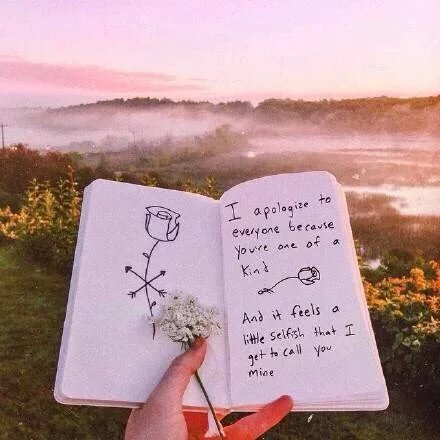 I apologize to
everyone because
you're one of a
kind
And it feels a
little selfish that I
get to call you
mine